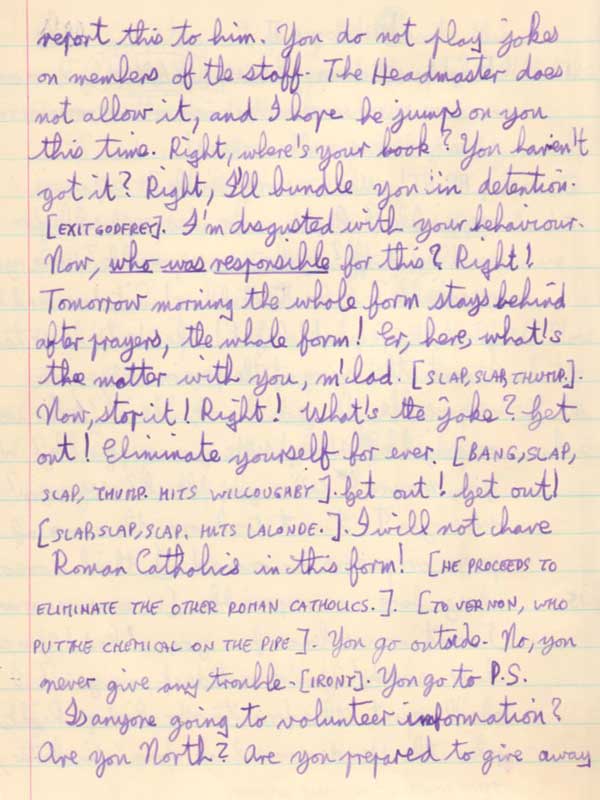 report this to him. You do not play jokes
on members of the staff. The Headmaster does
not allow it, and I hope he jumps on you
this time. Right, where's your book? You haven't
got it? Right, I'll bundle you in detention.
[EXIT GODFREY]. I'm disgusted with your behaviour.
Now, who was responsible for this? Right!
Tomorrow morning the whole form stays behind
after prayers, the whole form! Er, here, what's
the matter with you, m'lad. [SLAP, SLAP, THUMP.].
Now, stop it! Right! What's the joke? Get
out! Eliminate yourself for ever. [BANG, SLAP,
SLAP, THUMP. HITS WILLOUGHBY]. Get out! Get out!
[SLAP, SLAP, SLAP. HITS LALONDE.]. I will not have
Roman Catholics in this form! [HE PROCEEDS TO
ELIMINATE THE OTHER ROMAN CATHOLICS.]. [TO VERNON, WHO
PUT THE CHEMICAL ON THE PIPE]. You go outside. No, you
never give any trouble. [IRONY]. You go to P.S.
Is anyone going to volunteer information?
Are you North? Are you prepared to give away